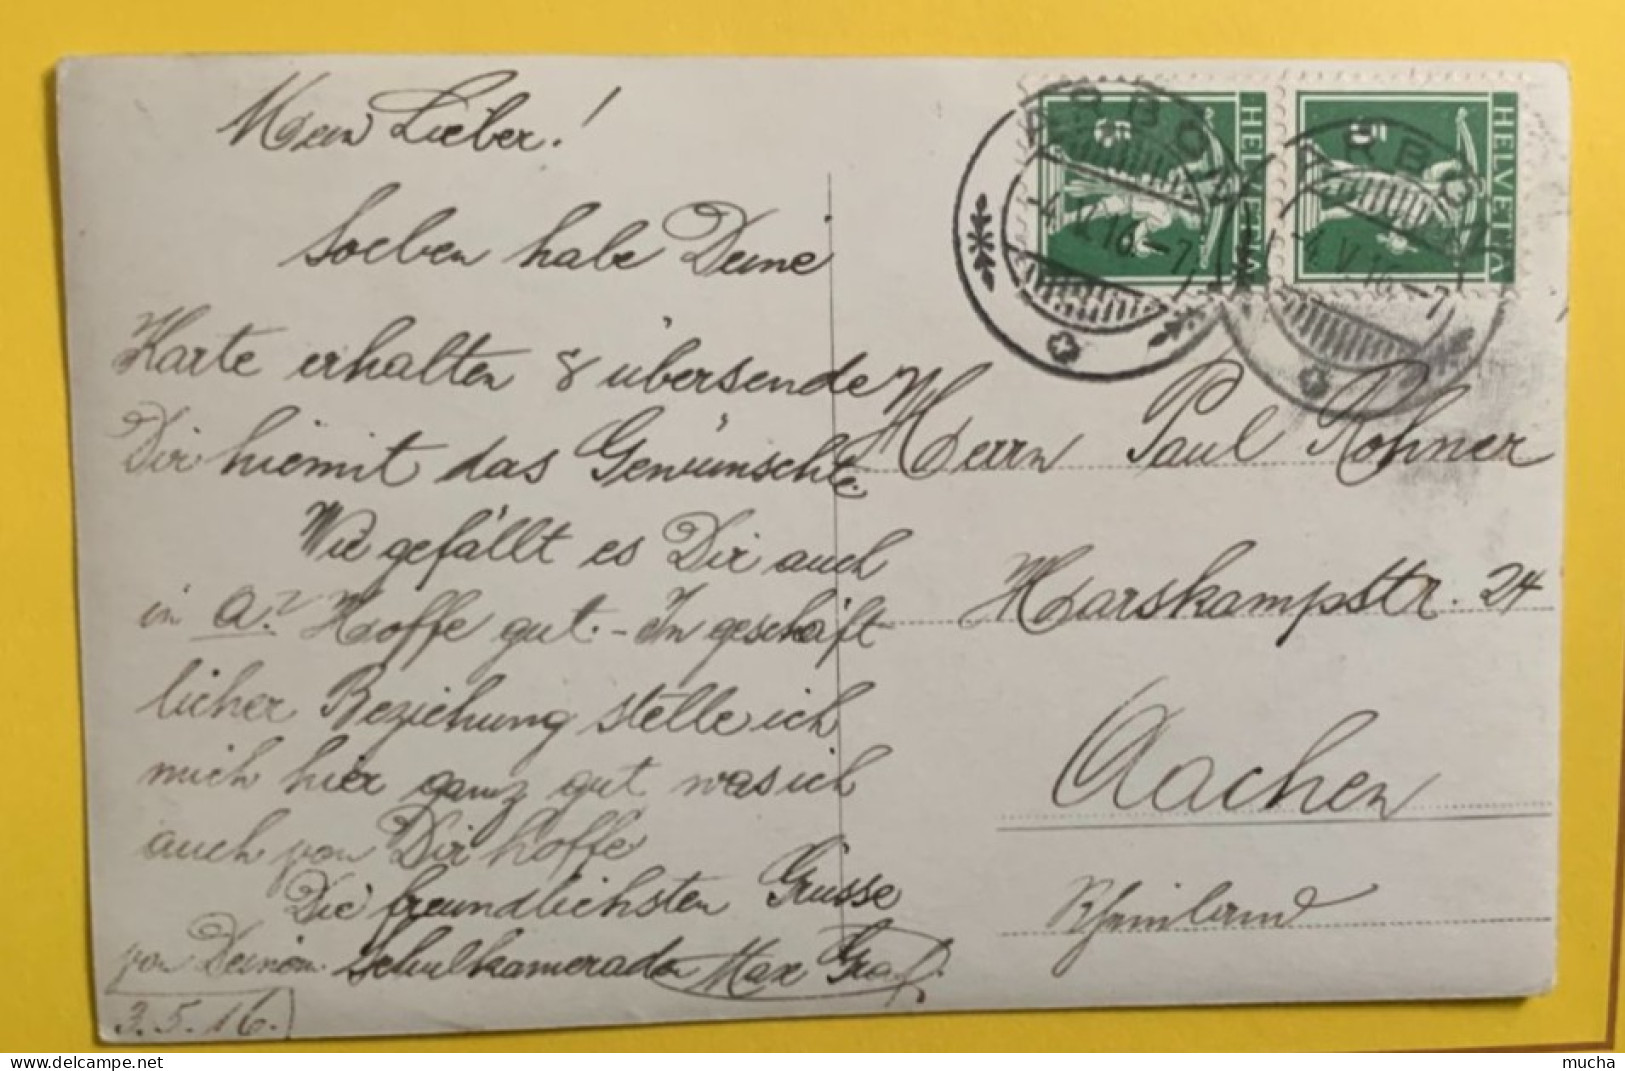 Mein Lieber!
Soeben habe Deine
Karte erhalten & übersende
Dir hiemit das Gewünschte.
Wie gefällt es Dir auch
in A.? Hoffe gut. - In geschäft-
licher Beziehung stelle ich
mich hier ganz gut was ich
auch von Dir hoffe
Die freundlichsten Grüsse
von Deinem Schulkameraden Max Graf.
3.5.16.
HELVETIA
5
HELVETIA
5
ARBON
-4.V.16.-7
ARBON
-4.V.16.-7
Herrn Paul Rohner
Harskampstr. 24
Aachen
Rheinland
delcampe.net
mucha